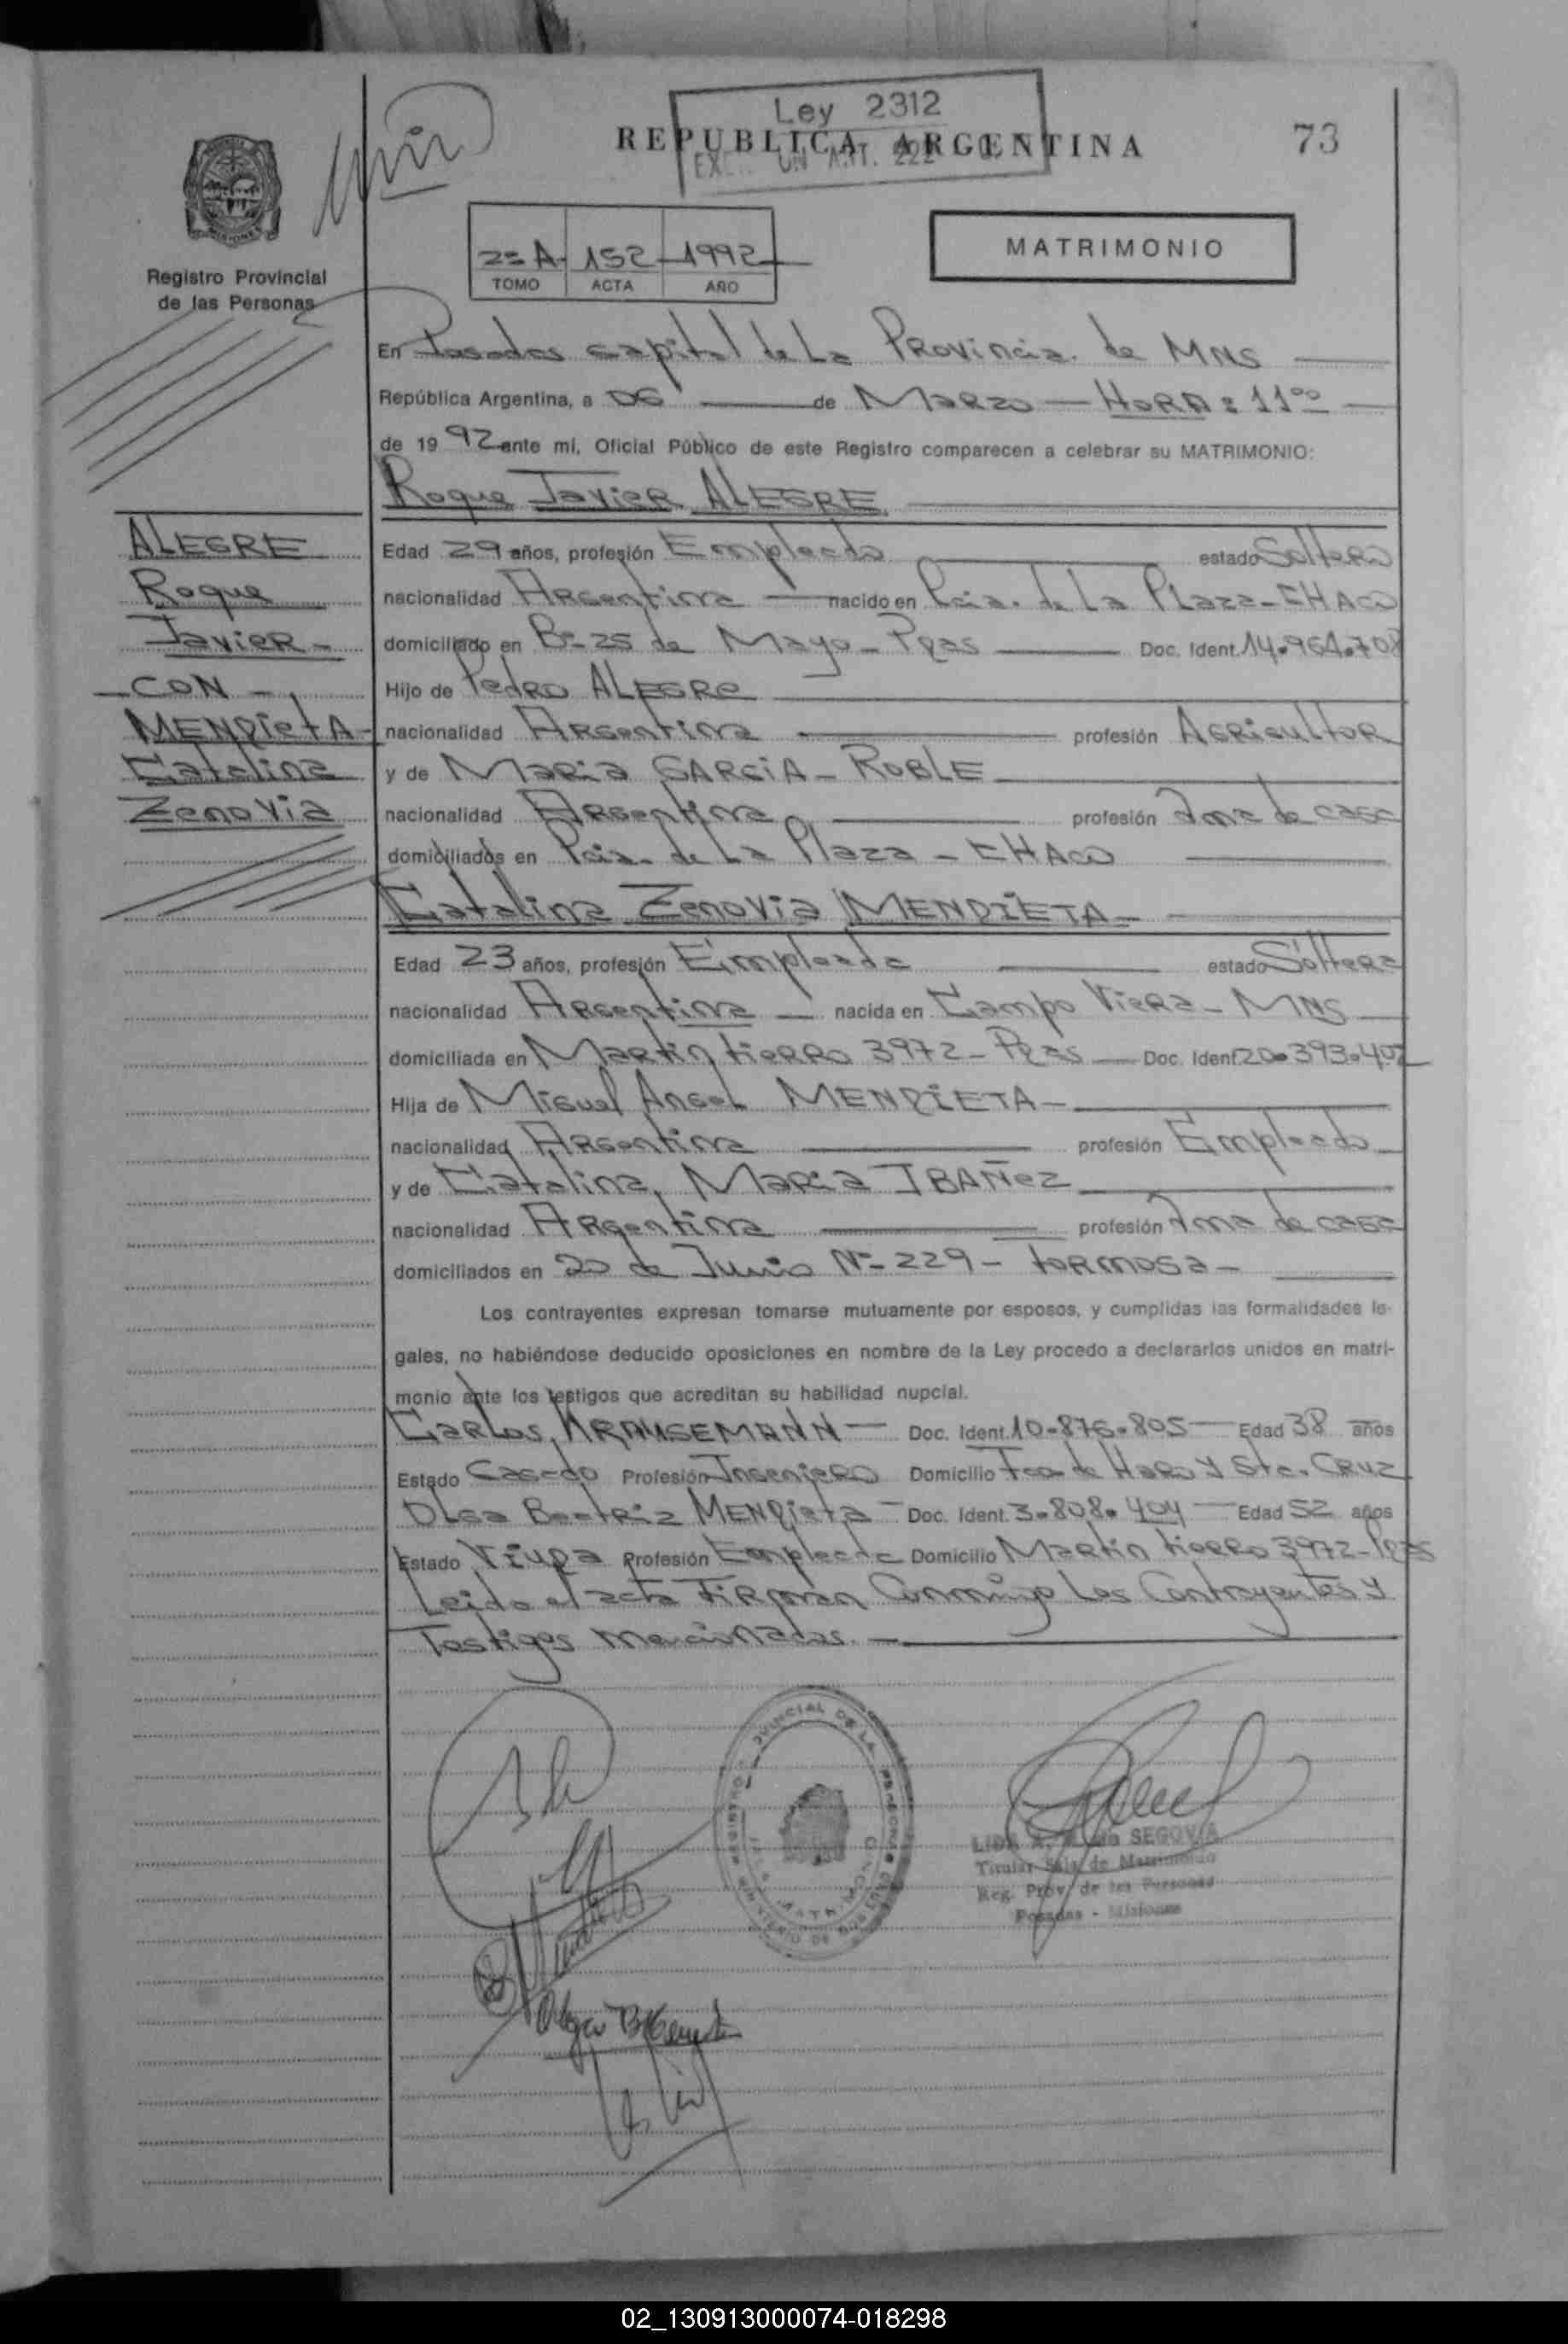 Ley 2312
REPUBLICA ARGENTINA
73
MISIONES
Registro Provincial
de las Personas
2º A - 152 - 1992
TOMO ACTA AÑO
MATRIMONIO
En Posadas capital de La Provincia de MNS
República Argentina, a 06 de Marzo - HORA: 11 00
de 1992 ante mí, Oficial Público de este Registro comparecen a celebrar su MATRIMONIO:
Roque Javier ALEGRE
ALEGRE
Roque
Javier -
CON -
MENDIETA -
Catalina
Zenovia
Edad 29 años, profesión Empleado estado Soltero
nacionalidad Argentina nacido en Pcia. de La Plaza - CHACO
domiciliado en Bº 25 de Mayo - Pdas Doc. Ident. 14.964.708
Hijo de Pedro ALEGRE
nacionalidad Argentina profesión Agricultor
y de Maria GARCIA - ROBLE
nacionalidad Argentina profesión Ama de casa
domiciliados en Pcia. de La Plaza - CHACO
Catalina Zenovia MENDIETA -
Edad 23 años, profesión Empleada estado Soltera
nacionalidad Argentina - nacida en Campo Viera - MNS
domiciliada en Martin Fierro 3972 - Pdas Doc. Ident. 20.393.402
Hija de Miguel Angel MENDIETA -
nacionalidad Argentina profesión Empleado
y de Catalina Maria IBAÑEZ
nacionalidad Argentina profesión Ama de casa
domiciliados en 20 de Junio Nº 229 - Formosa -
Los contrayentes expresan tomarse mutuamente por esposos, y cumplidas las formalidades le-
gales, no habiéndose deducido oposiciones en nombre de la Ley procedo a declararlos unidos en matri-
monio ante los testigos que acreditan su habilidad nupcial.
Carlos KRAUSEMANN - Doc. Ident. 10.876.805 - Edad 38 años
Estado Casado Profesión Ingeniero Domicilio Fco de Haro y Sta. CRUZ
Olga Beatriz MENDIETA - Doc. Ident. 3.808.404 - Edad 52 años
Estado Viuda Profesión Empleada Domicilio Martin Fierro 3972 - Pdas
Leida el acta Firman Conmigo Los Contrayentes y
Testigos Mencionados. -
SEGOVIA
Titular Sala de Matrimonio
Reg. Prov. de las Personas
Posadas - Misiones
02_130913000074-018298